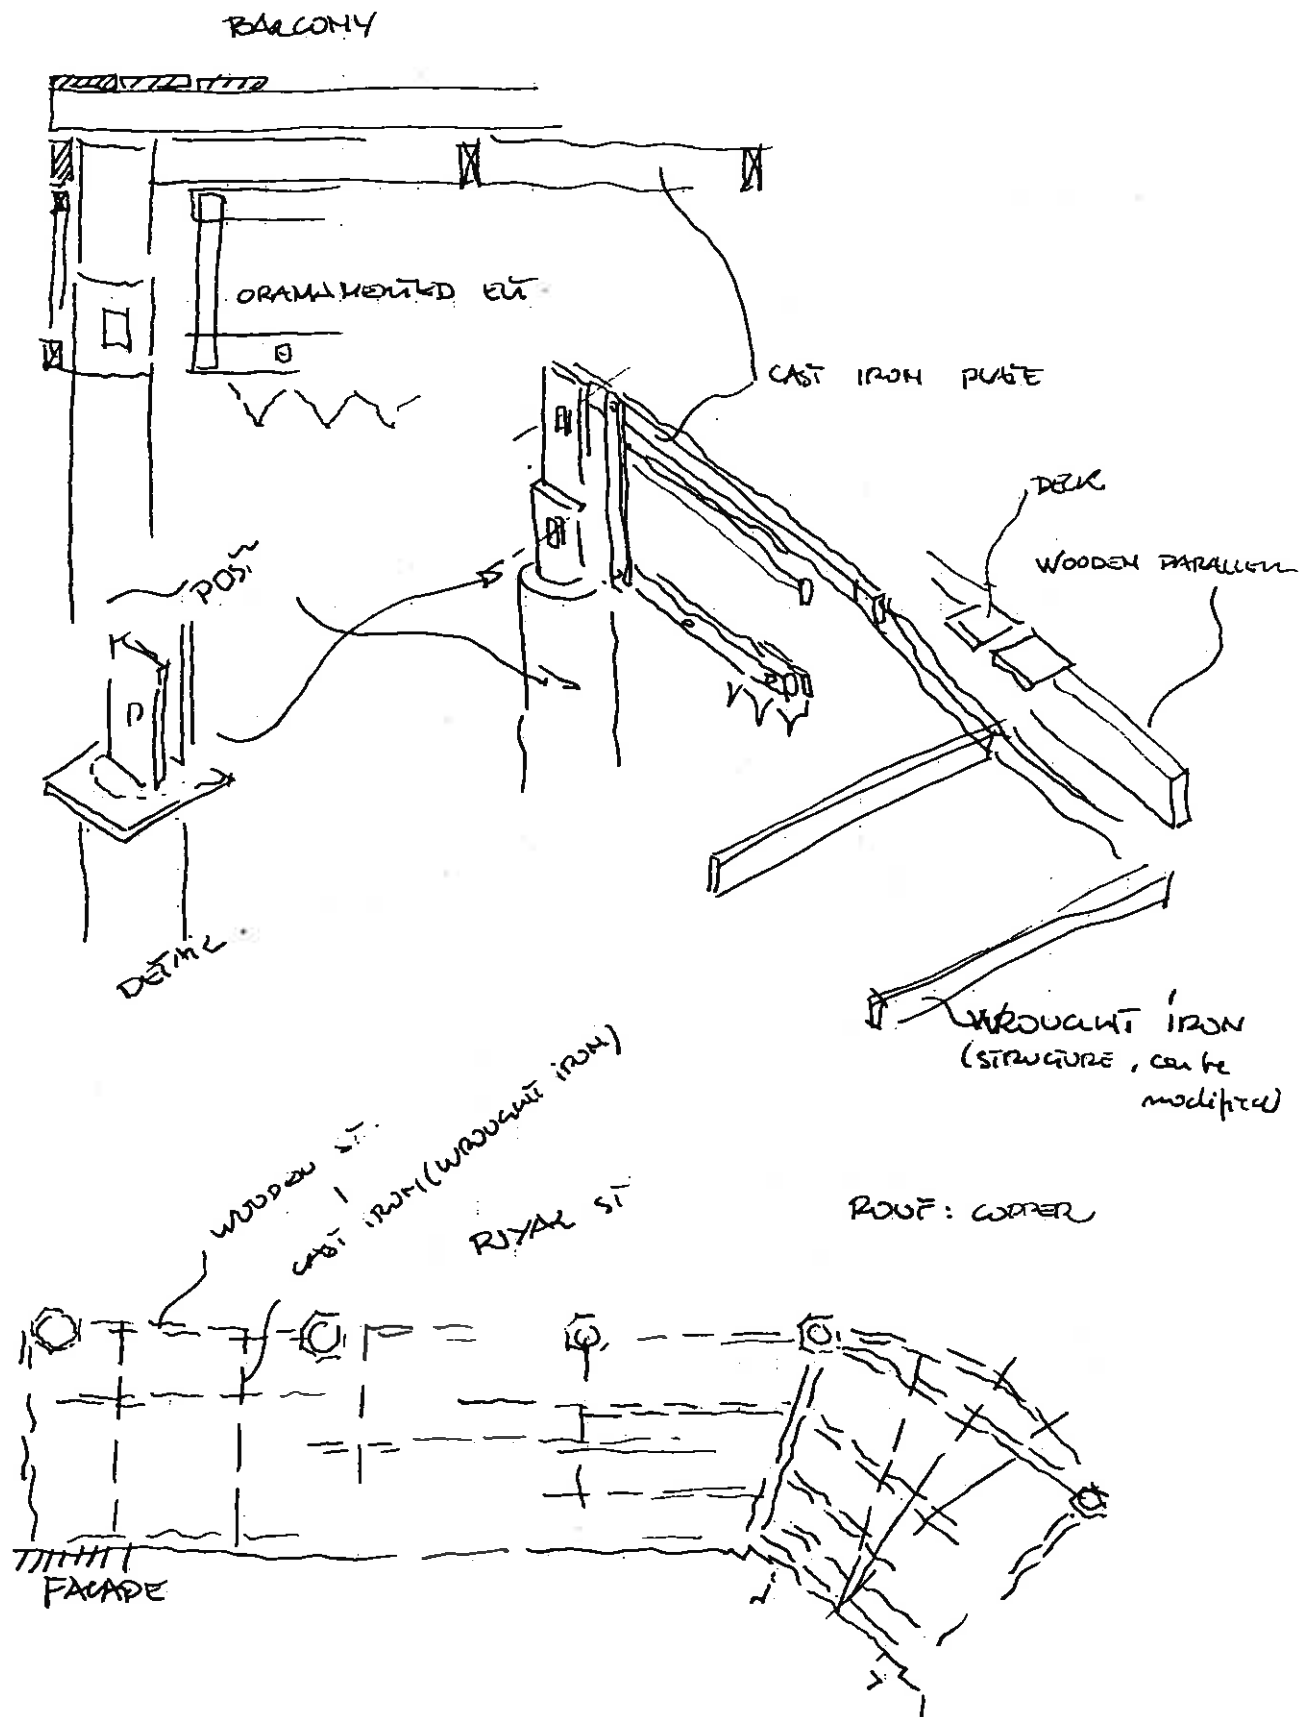 BALCONY
ORAMAMENTED ELT
CAST IRON PLATE
DECK
WOODEN PARALLELL
POST
DETAIL
WROUGHT IRON
(STRUCTURE, can be
modified)
WOODEN ST.
CAST IRON (WROUGHT IRON)
ROYAL ST
ROOF: COPPER
FACADE